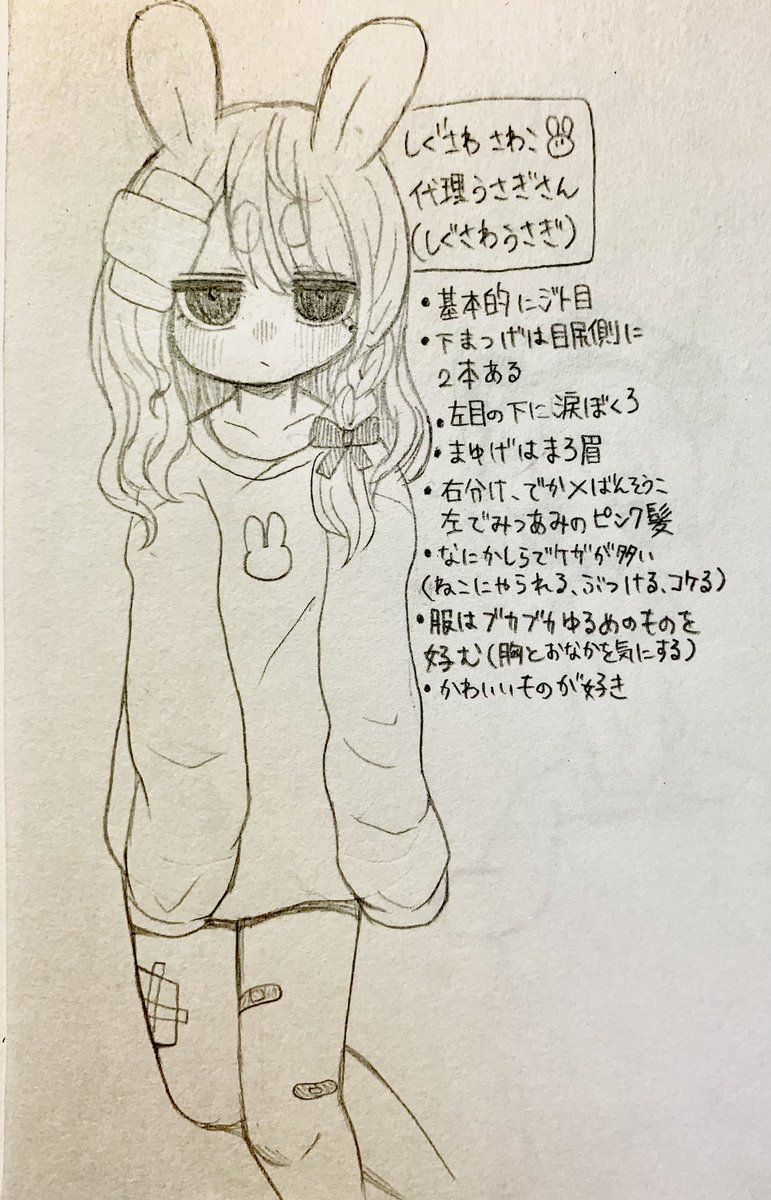 しぐさわ さわこ
代理うさぎさん
(しぐさわうさぎ)
・基本的にジト目
・下まつげは目尻側に
2本ある
・左目の下に涙ぼくろ
・まゆげはまろ眉
・右分け、でか×ばんそうこ
左でみつあみのピンク髪
・なにかしらでケガが多い
(ねこにやられる、ぶつける、コケる)
・服はブカブカゆるめのものを
好む(胸とおなかを気にする)
・かわいいものが好き